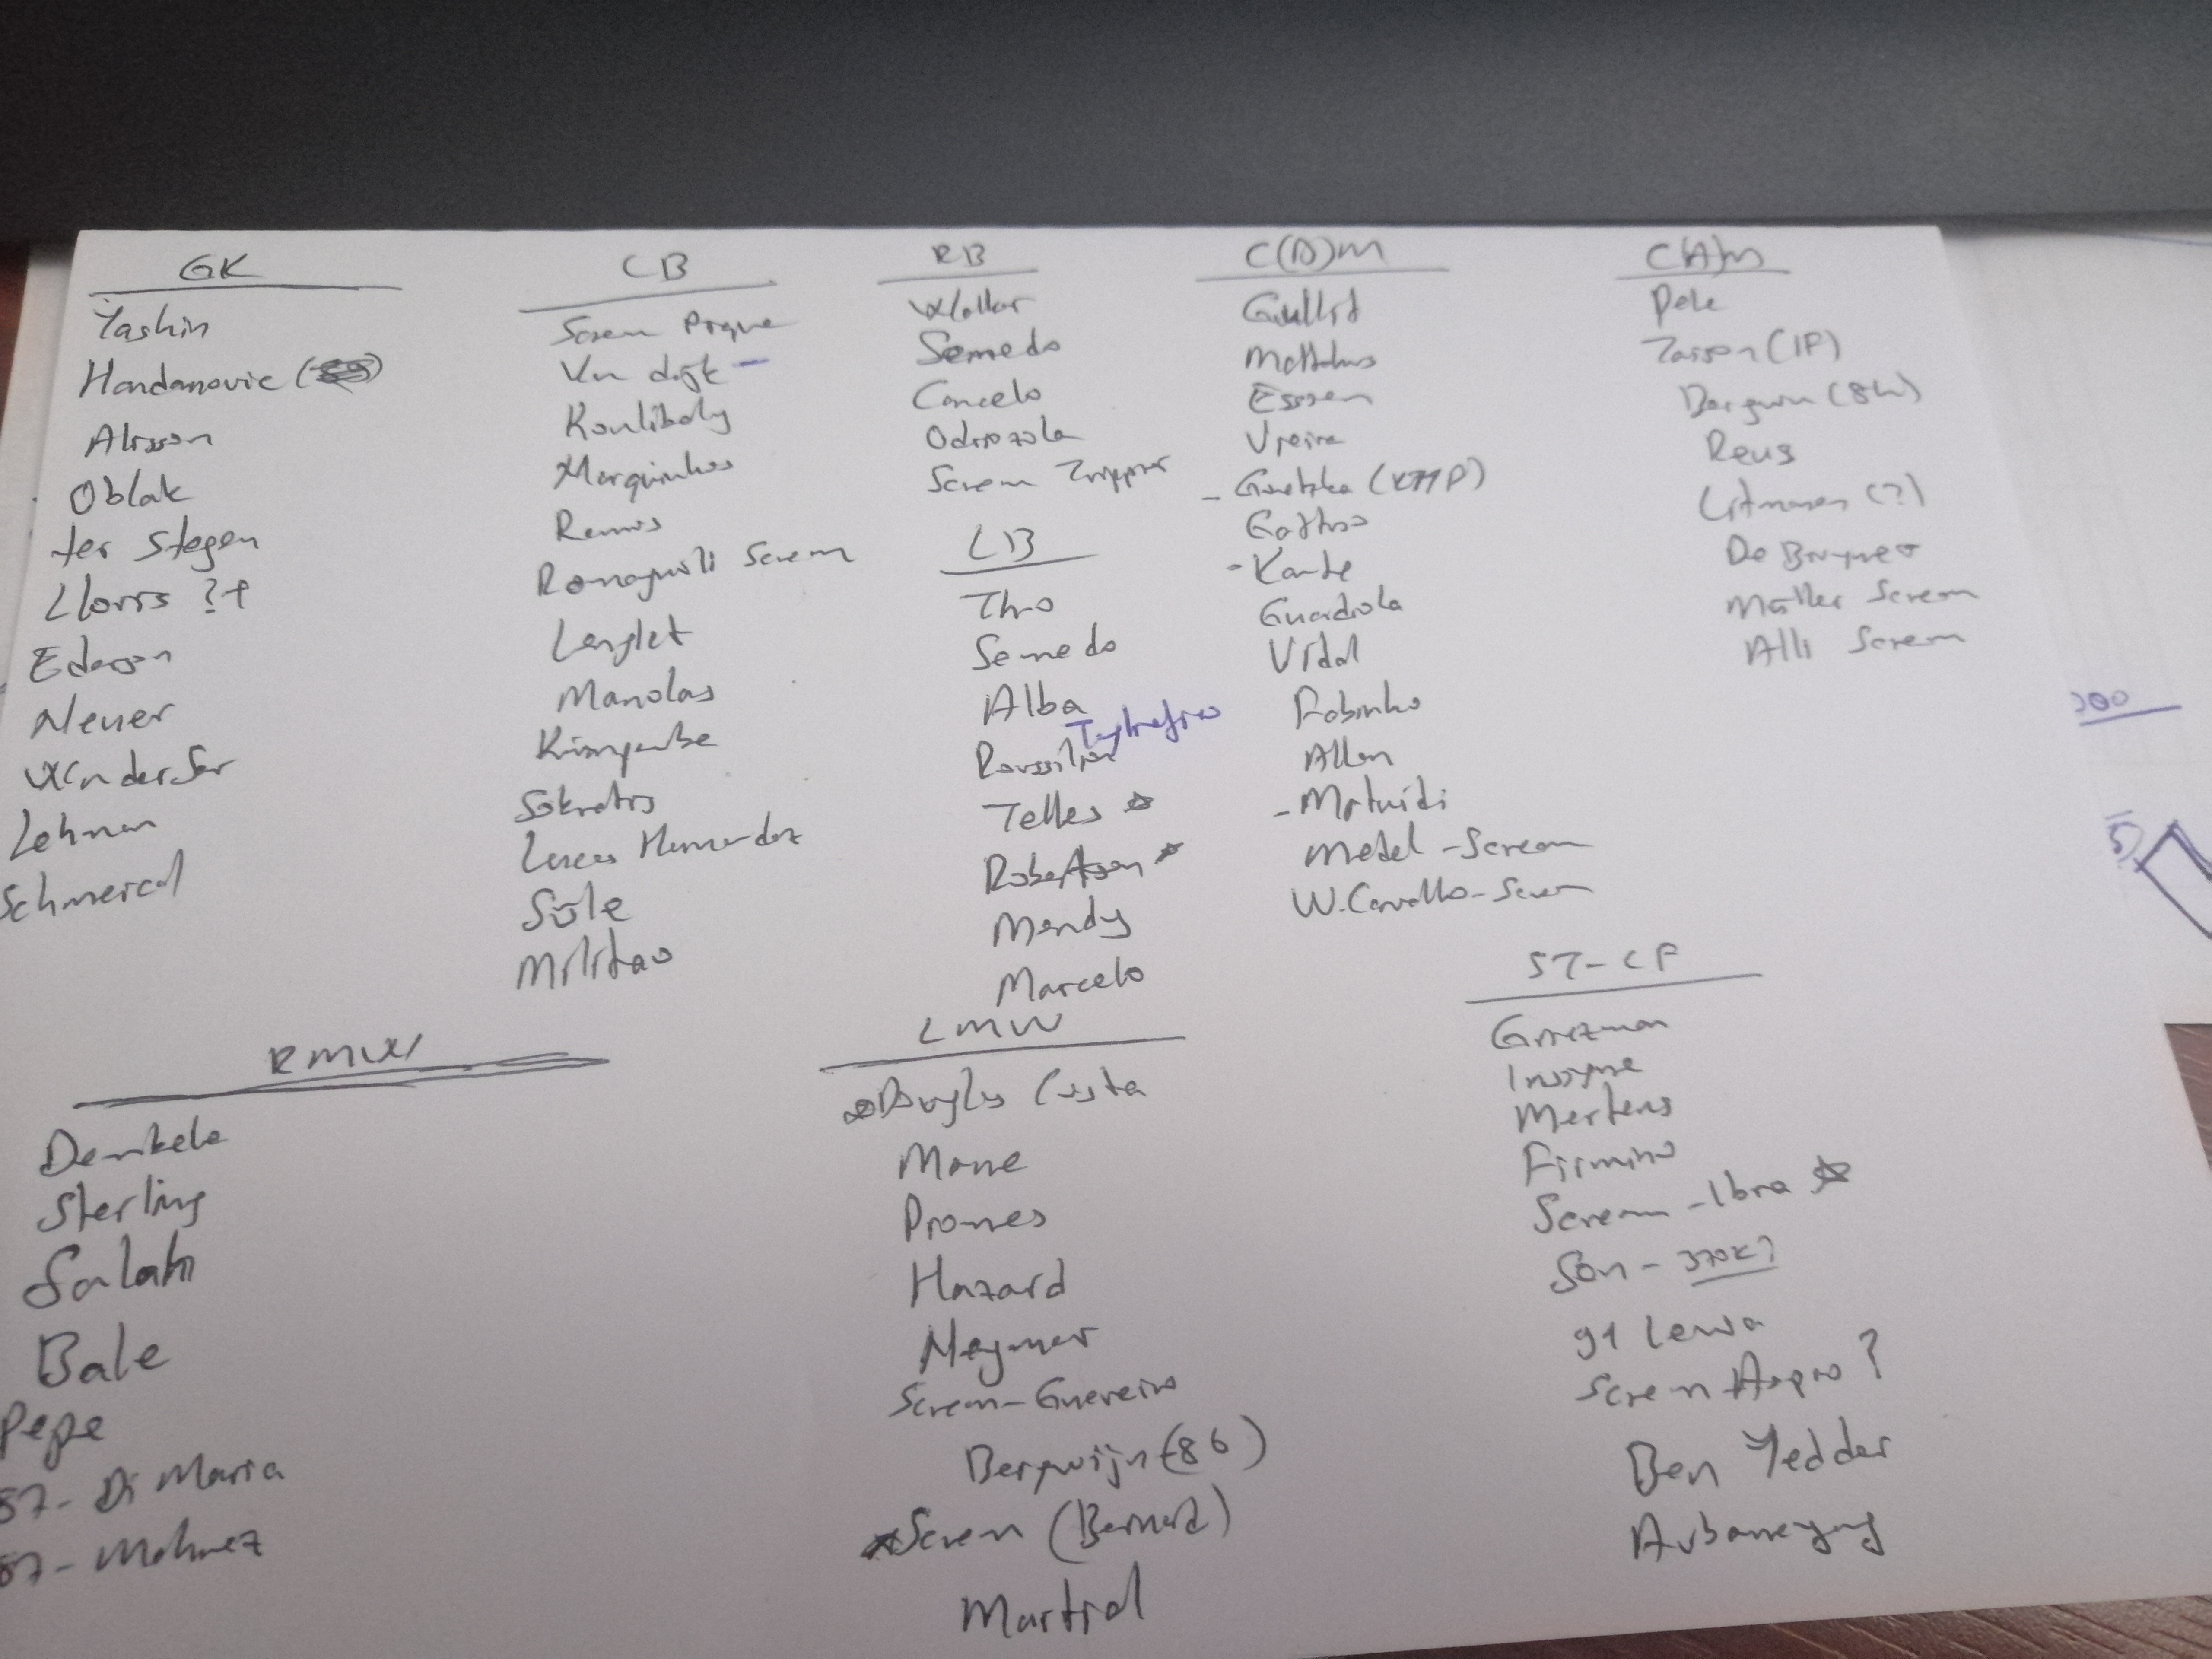 GK
Yashin
Handanovic (
Alisson
Oblak
ter Stegen
Lloris ?+
Ederson
Neuer
Van der Sar
Lehman
Schmeical
CB
Scream Pique
Van dijk -
Koulibaly
Marquinhos
Ramos
Romagnoli Scream
Lenglet
Manolas
Kimpembe
Sokratis
Lucas Hernandez
Süle
Militao
RB
Walker
Semedo
Cancelo
Odriozola
Scream Trippier
LB
Theo
Semedo
Alba
Tagliafico
Roussilon
Telles ☆
Robertson ☆
Mendy
Marcelo
C(D)M
Gullit
Mattheus
Essien
Vieira
- Goretzka (
Gattuso
- Kante
Guardiola
Vidal
Fabinho
Allan
- Matuidi
Medel - Scream
W. Carvalho - Scream
C(A)M
Pele
(IF)
Bergwin (84)
Reus
Litmanen (?)
De Bruyne
Müller Scream
Alli Scream
RMW
Dembele
Sterling
Salah
Bale
Pepe
87- Di Maria
87- Mahrez
LMW
Douglas Costa
Mane
Promes
Hazard
Neymar
Scream - Guereiro
Bergwijn (86)
Scream (Bernard)
Martial
ST-CF
Griezman
Insigne
Mertens
Firmino
Scream - Ibra ☆
Son - 370K?
91 Lewa
Scream Aspas ?
Ben Yedder
Aubameyang
5)